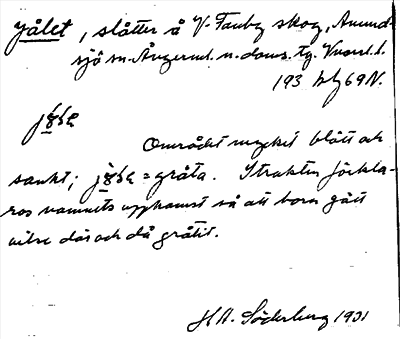 Jålet, slåtter å V. Tanby skog, Anund-
sjö sn. Ångerml. n. doms. tg. Vnorrl. l.
193 kbg 69 N.
Området mycket blött och
sankt; = gråta. I trakten förkla-
ras namnets uppkomst så att barn gått
vilse där och då gråtit.
H A. Söderberg 1931